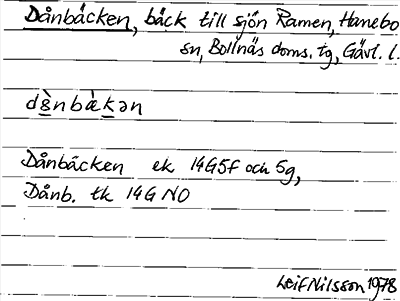 Dånbäcken, bäck till sjön Ramen, Hanebo
sn, Bollnäs doms. tg, Gävl. l.
Dånbäcken ek 14G5f och 5g,
Dånb. tk 14G NO
Leif Nilsson 1978